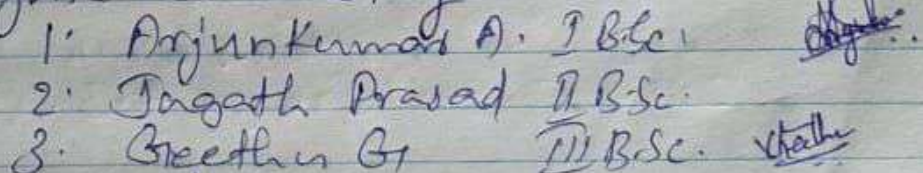 1. Arjunkumar A. I BSc.
2. Jagath Prasad II B.Sc.
3. Geethu G III B.Sc.